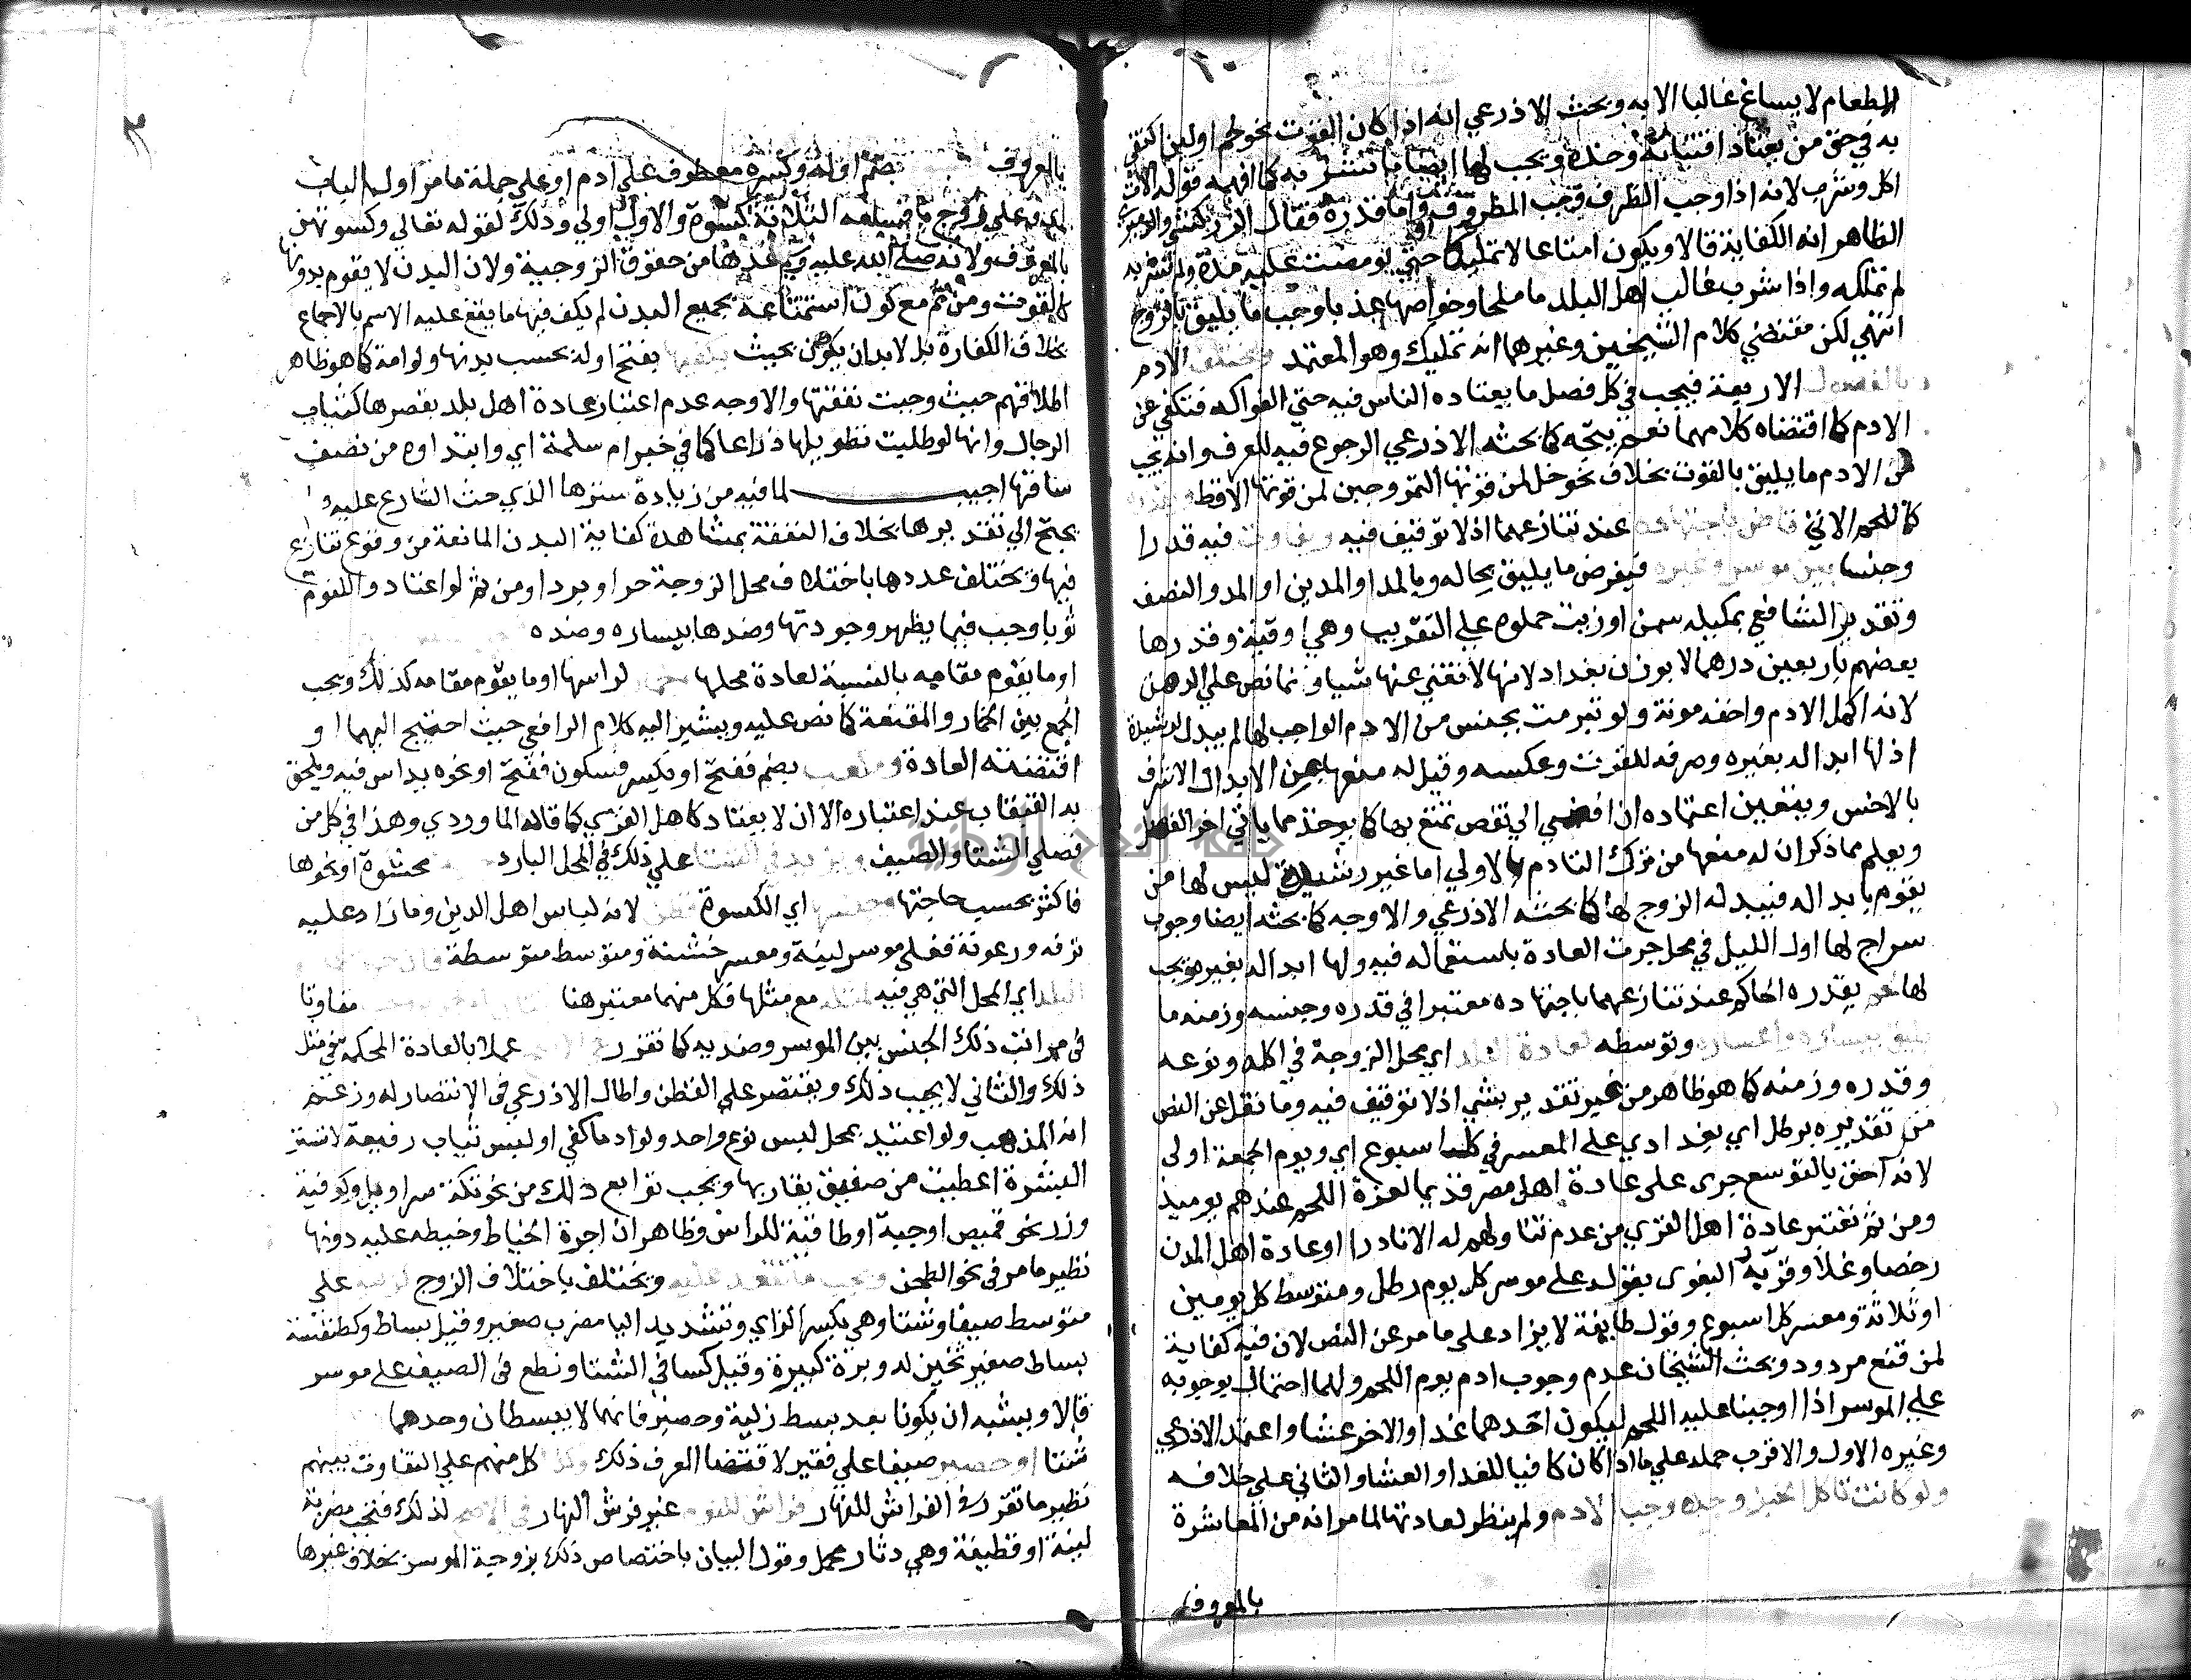 الطعام لا يساغ غالبا الا به وبحث الاذرعي انه اذا كان القوت نحو لحم او لبن اكتفي
به في حق من يعتاد اقتياته وحده ويجب لها ايضا ما تشربه كما افهمه قوله الات
اكل وشرب لانه اذا وجب الظرف وجب المظروف واما قدره فقال الزركشي والدميري
الظاهر انه الكفاية قالا ويكون امتاعا لا تمليكا حتي لو مضت عليه مدة ولم تشربه
لم تملكه واذا شرب غالب اهل البلد ما ملحا وخواصها عذبا وجب ما يليق بالزوج
انتهي لكن مقتضي كلام الشيخين وغيرهما انه تمليك وهو المعتمد ويختلف الادم
بالفصول الاربعة فيجب في كل فصل ما يعتاده الناس فيه حتي الفواكه فتكفي عن
الادم كما اقتضاه كلامهما نعم يتجه كما بحثه الاذرعي الرجوع فيه للعرف وانه يجب
من الادم ما يليق بالقوت بخلاف نحو خل لمن قوتها التمر وجبن لمن قوتها الاقط
كاللحم الاتي قاض باجتهاده عند تنازعهما اذ لا توقيف فيه ويفاوت فيه قدرا
وجنسا بين موسر وغيره فيفرض ما يليق بحاله وبالمد او المدين او المد والنصف
وتقدير الشافعي بمكيله سمن او زيت حملوه علي التقريب وهي اوقية وقدرها
بعضهم باربعين درهما لا بوزن بغداد لانها لا تغني عنها شيا وانما نص علي الدهن
لانه اكمل الادم واخفه مونة ولو تبرمت بجنس من الادم الواجب لها لم يبدل لرشيدة
اذ لها ابداله بغيره وصرفه للقوت وعكسه وقيل له منعها من الابدال الاشرف
بالاخس ويتعين اعتماده ان افضي الي نقص تمتع بها كما يوخذ مما ياتي اخر الفصل
ويعلم مما ذكر ان له منعها من ترك التادم بالاولي اما غير رشيدة ليس لها من
يقوم بابداله فيبدله الزوج لها كما بحثه الاذرعي والاوجه كما بحثه ايضا وجوب
سراج لها اول الليل في محل جرت العادة باستعماله فيه ولها ابداله بغيره ويجب
لها لحم يقدره الحاكم عند تنازعهما باجتهاده معتبرا في قدره وجنسه وزمنه ما
يليق بيساره واعساره وتوسطه لعادة البلد اي محل الزوجة في اكله ونوعه
وقدره وزمنه كما هو ظاهر من غير تقدير بشي اذ لا توقيف فيه وما نقل عن النص
من تقديره برطل اي بغدادي علي المعسر في كل اسبوع اي ويوم الجمعة اولي
لانه احق بالتوسع جري علي عادة اهل مصر قديما لعزة اللحم عندهم يوميذ
ومن ثم تعتبر عادة اهل القري من عدم تناولهم له الا نادرا او عادة اهل المدن
رخصا وغلا وقربه البغوي بقوله علي موسر كل يوم رطل ومتوسط كل يومين
او ثلاثة ومعسر كل اسبوع وقول طايفة لا يزاد علي ما مر عن النص لان فيه كفاية
لمن قنع مردود وبحث الشيخان عدم وجوب ادم يوم اللحم ولهما احتمال بوجوبه
علي الموسر اذا اوجبنا عليه اللحم ليكون احدهما غدا والاخر عشا واعتمد الاذرعي
وغيره الاول والاقرب حمله علي ما اذا كان كافيا للغدا والعشا والثاني علي خلافه
ولو كانت تاكل الخبز وحده وجب الادم ولم ينظر لعادتها لما مر انه من المعاشرة
بالمعروف
بالمعروف بضم اوله وكسره معطوف علي ادم او علي جملة ما مر اول الباب
اي وعلي زوج باقسامه الثلاثة كسوة والاول اولي وذلك لقوله تعالي وكسوتهن
بالمعروف ولانه صلي الله عليه وسلم عدها من حقوق الزوجية ولان البدن لا يقوم بدونها
كالقوت ومن ثم مع كون استمتاعه بجميع البدن لم يكف فيها ما يقع عليه الاسم بالاجماع
بخلاف الكفارة بل لا بد ان يكون بحيث يكفيها بفتح اوله بحسب بدنها ولو امة كما هو ظاهر
اطلاقهم حيث وجبت نفقتها والاوجه عدم اعتبار عادة اهل بلد بقصرها كثياب
الرجال وانها لو طلبت تطويلها ذراعا كما في خبر ام سلمة اي وابتداوه من نصف
ساقها اجيبت لما فيه من زيادة سترها الذي حث الشارع عليه و
يحتج الي تقديرها بخلاف النفقة بمشاهدة كفاية البدن المانعة من وقوع تنازع
فيها ويختلف عددها باختلاف محل الزوجة حرا وبردا ومن ثم لو اعتادوا للنوم
ثوبا وجب فيما يظهر وجودتها وضدها بيساره وضده
او ما يقوم مقامه بالنسبة لعادة محلها خمار لراسها او ما يقوم مقامه كذلك ويجب
الجمع بين الخمار والمقنعة كما نص عليه ويشير اليه كلام الرافعي حيث احتيج اليهما او
اقتضته العادة ومكعب بضم ففتح او بكسر فسكون ففتح او نحوه يداس فيه ويلحق
به القبقاب عند اعتباره الا ان لا يعتاد كاهل القري كما قاله الماوردي وهذا في كل من
فصلي الشتا والصيف ويزيد في الشتا علي ذلك في المحل البارد محشوة او نحوها
فاكثر بحسب حاجتها وجنسها اي الكسوة قطن لانه لباس اهل الدين وما زاد عليه
ترفه ورعونة فعلي موسر لينه ومعسر خشنه ومتوسط متوسطة فان جرت
البلد اي المحل التي هي فيه لمثله مع مثلها فكل منهما معتبر هنا مفاوتا
في مراتب ذلك الجنس بين الموسر وضديه كما تقرر عملا بالعادة المحكمة في مثل
ذلك والثاني لا يجب ذلك ويقتصر علي القطن واطال الاذرعي في الانتصار له وزعم
انه المذهب ولو اعتيد بمحل لبس نوع واحد ولو ادما كفي او لبس ثياب رفيعة لا تستر
البشرة اعطيت من صفيق يقاربها ويجب توابع ذلك من نحو تكة سراويل وكوفية
وزر نحو قميص او جبة او طاقية للراس وظاهر ان اجرة الخياط وخيطه عليه دونها
نظير ما مر في نحو الطحن ويجب ما تقعد عليه ويختلف باختلاف الزوج علي
متوسط صيفا وشتا وهي بكسر الزاي وتشديد اليا مضرب صغير وقيل بساط وكطنفسة
بساط صغير ثخين له وبرة كبيرة وقيل كسا في الشتا ونطع في الصيف علي موسر
قالا ويشبه ان يكونا بعد بسط زلية وحصير فانهما لا يبسطان وحدهما
شتا او حصير صيفا علي فقير لاقتضا العرف ذلك وكذا كل منهم علي التفاوت بينهم
نظير ما تقرر في الفراش للنهار فراش للنوم غير فرش النهار في الاصح لذلك فتجب مضربة
لينة او قطيفة وهي دثار مخمل وقول البيان باختصاص ذلك بزوجة الموسر بخلاف غيرها